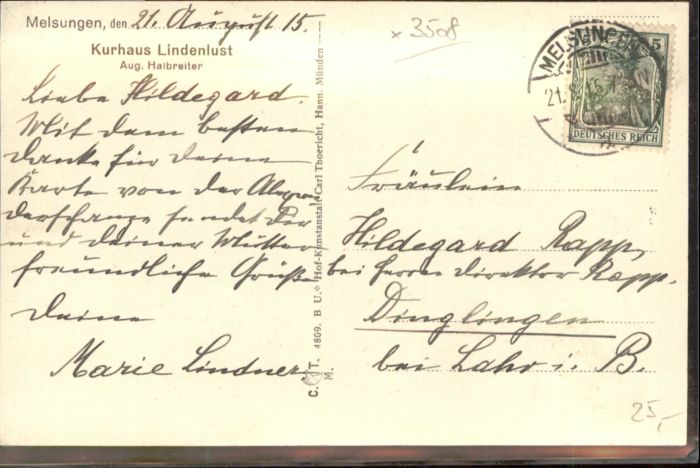 Melsungen, den 21. August 15.
Kurhaus Lindenlust
Aug. Halbreiter
Liebe Hildegard.
Mit dem besten
Danke für deine
Karte von der Alexan
derschanze sendet Dir
und deiner Mutter
freundliche Grüße
Deine
Marie Lindner
C. T. M. 4809. B U. Hof-Kunstanstalt Carl Thoericht, Hann. Münden
x 3508
MELSUNGEN
21.
5
DEUTSCHES REICH
Fräulein
Hildegard Rapp,
bei Herrn Direktor Rapp.
Dinglingen
bei Lahr i. B.
25,-